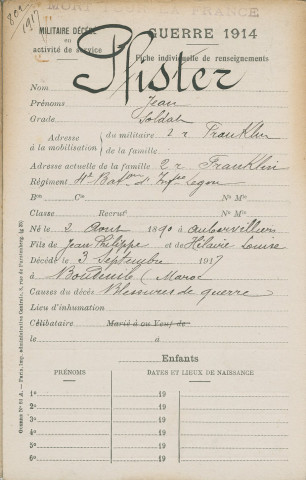 MORT POUR LA FRANCE
1917
MILITAIRE DÉCÉDÉ
en
activité de service
GUERRE 1914
Fiche individuelle de renseignements
Nom Pfister
Prénoms Jean
Grade Soldat
Adresse à la mobilisation du militaire 2 r Franklin
de la famille
Adresse actuelle de la famille 2 r Franklin
Régiment 4e Batон d'Infrie Légère
Bon Cie No Mle
Classe Recrut No Mle
Né le 2 Aout 1890 à Aubervilliers
Fils de Jean Philippe et de Louise
Décédé le 3 Septembre 1917
à (Maroc
Causes du décès Blessures de guerre
Lieu d'inhumation
Célibataire Marié à ou Veuf de
le à
Enfants
PRÉNOMS DATES ET LIEUX DE NAISSANCE
1o 19
2o 19
3o 19
4o 19
5o 19
6o 19